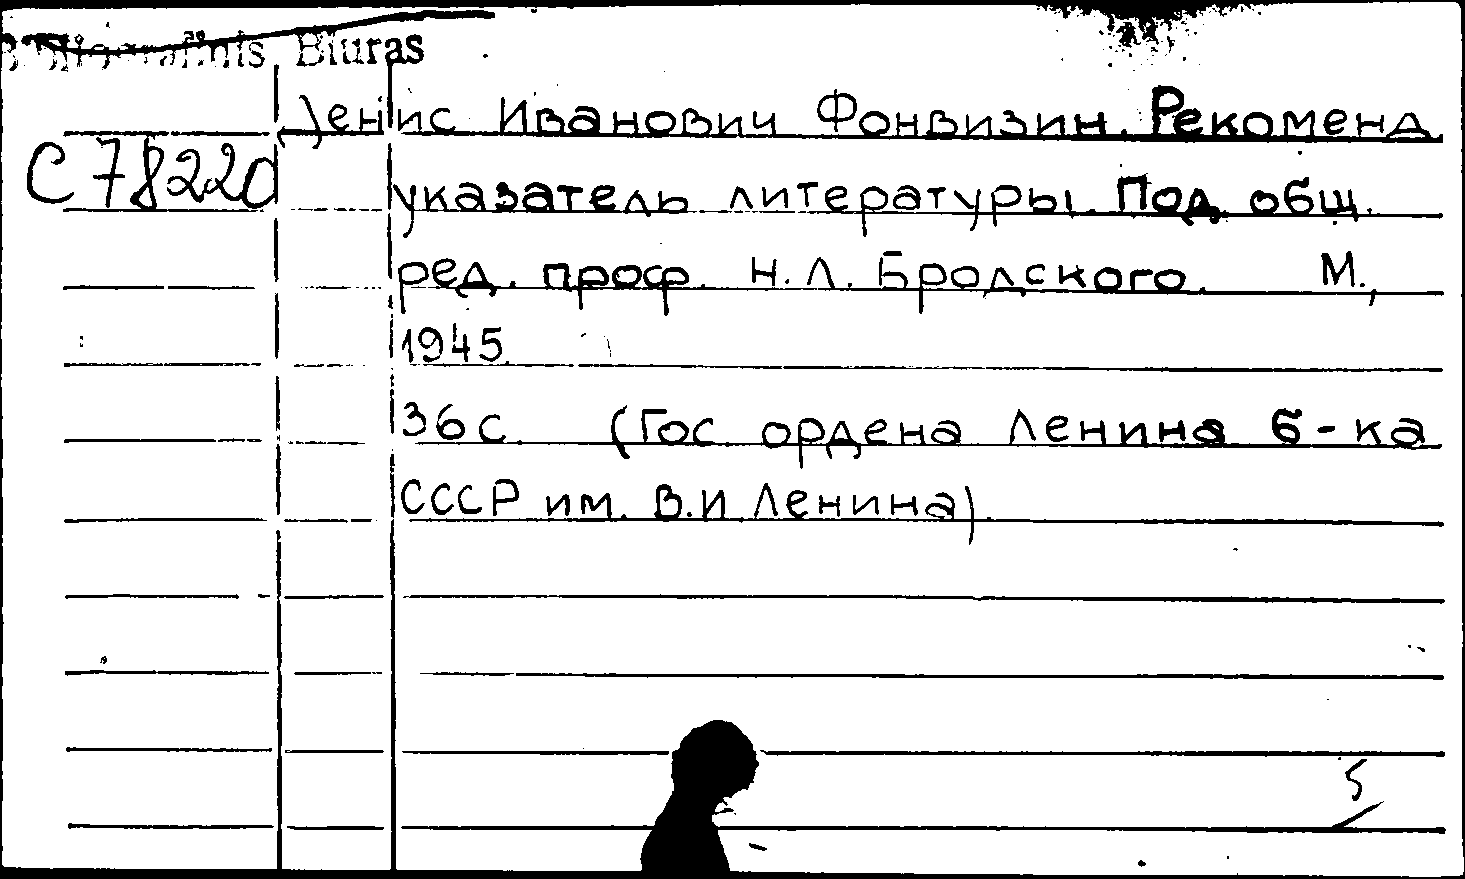 Bibliografinis Biuras
Денис Иванович Фонвизин. Рекоменд.
С 78220
указатель литературы. Под общ.
ред. проф. Н. Л. Бродского. М.,
1945.
36 с. (Гос. ордена Ленина б-ка
СССР им. В.И. Ленина).
5